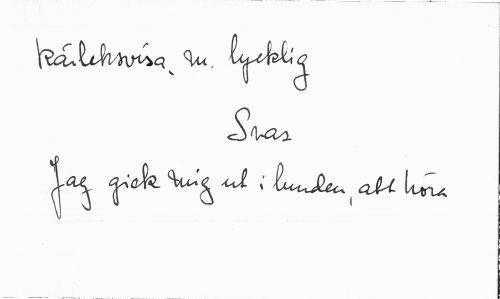 Kärleksvisa, m. lycklig
Svas
Jag gick mig ut i lunden, att höra